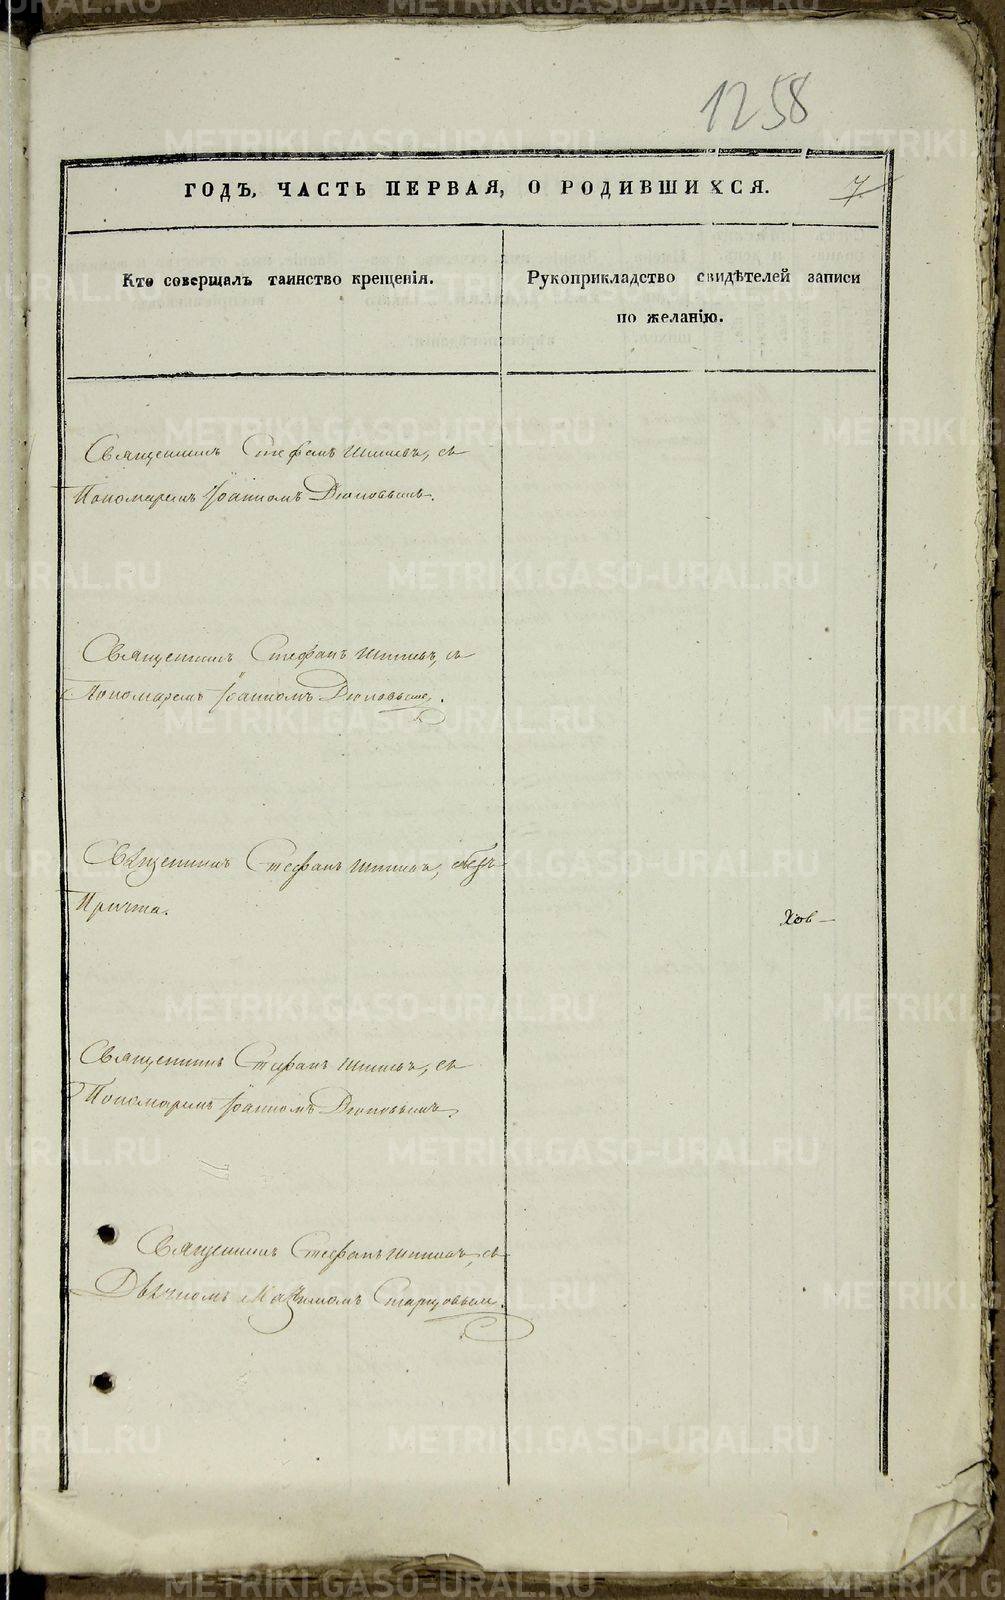 1258
ГОДЪ, ЧАСТЬ ПЕРВАЯ, О РОДИВШИХСЯ.
7
Кто совершалъ таинство крещенія.
Рукоприкладство свидѣтелей записи
по желанію.
Священникъ Стефанъ съ
Пономаремъ Іоанномъ
Священникъ Стефанъ съ
Пономаремъ Іоанномъ
Священникъ Стефанъ безъ
Причта.
Хов—
Священникъ Стефанъ съ
Пономаремъ Іоанномъ
Священникъ Стефанъ съ
Дьячкомъ Максимомъ Старцовымъ.
METRIKI.GASO-URAL.RU